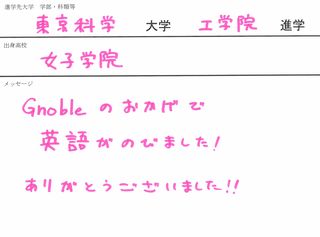 進学先大学 学部・科類等
東京科学 大学 工学院 進学
出身高校
女子学院
メッセージ
Gnobleのおかげで
英語がのびました!
ありがとうございました!!